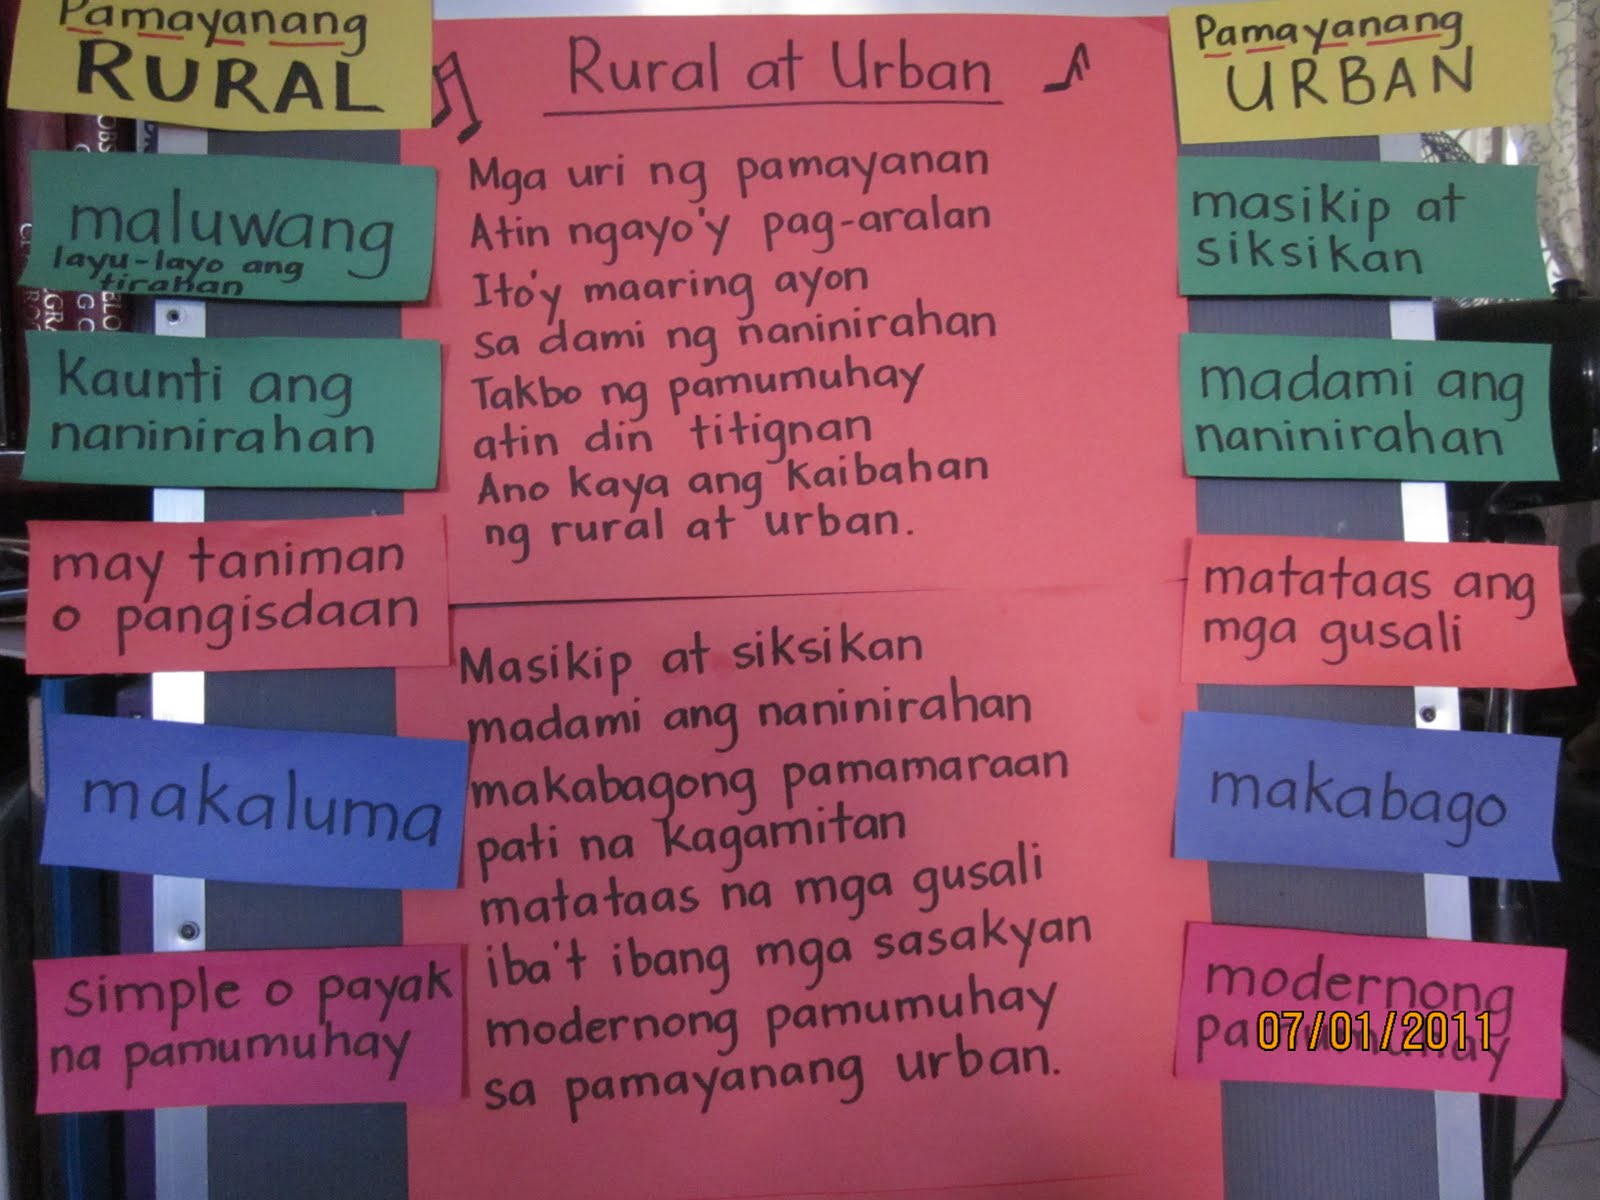 Pamayanang
RURAL
maluwang
layu-layo ang
tirahan
Kaunti ang
naninirahan
may taniman
o pangisdaan
makaluma
simple o payak
na pamumuhay
Rural at Urban
Mga uri ng pamayanan
Atin ngayo'y pag-aralan
Ito'y maaring ayon
sa dami ng naninirahan
Takbo ng pamumuhay
atin din titignan
Ano kaya ang kaibahan
ng rural at urban.
Masikip at siksikan
madami ang naninirahan
makabagong pamamaraan
pati na kagamitan
matataas na mga gusali
iba't ibang mga sasakyan
modernong pamumuhay
sa pamayanang urban.
Pamayanang
URBAN
masikip at
siksikan
madami ang
naninirahan
matataas ang
mga gusali
makabago
modernong
pamumuhay
07/01/2011